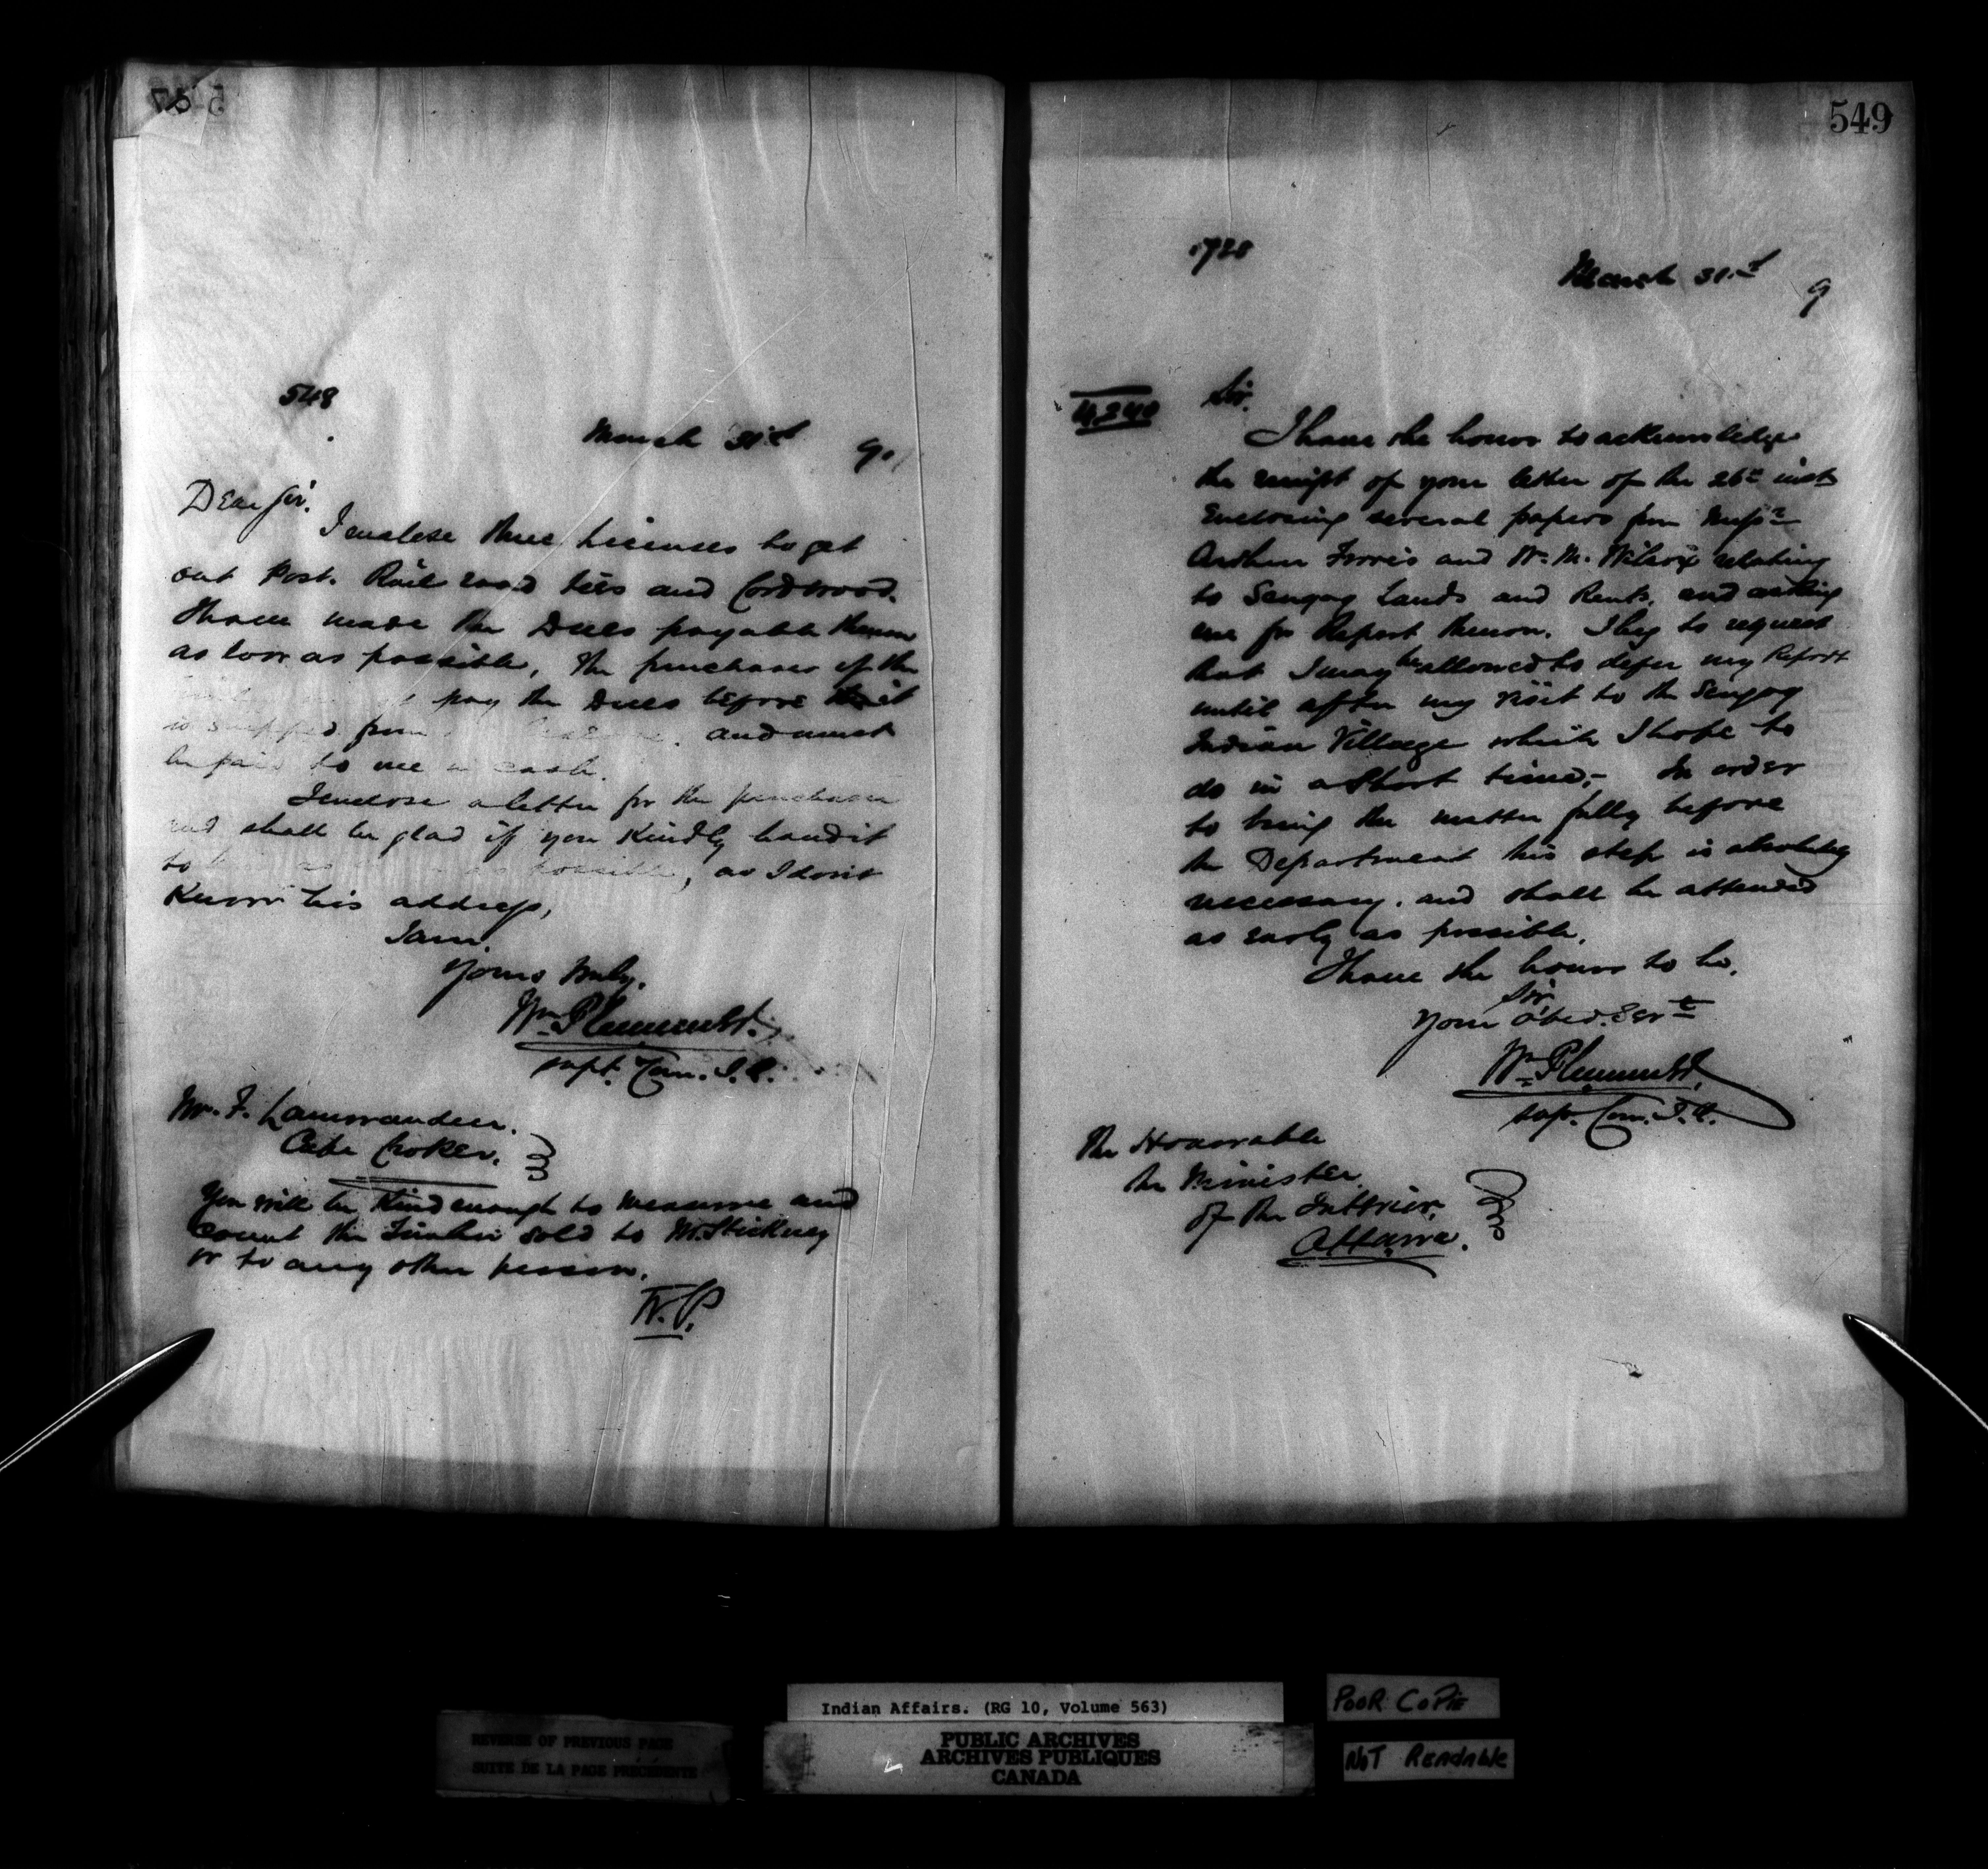 548
March 31st 9.
Dear Sir.
I enclose three Licenses to get
out Post. Rail road ties and Cordwood.
I have made the Dues payable thereon
as low as possible, the purchaser of the
pay the Dues before it
is shipped from and must
be paid to me in cash.
I enclose a letter for the purchaser
and shall be glad if you kindly hand it
to as possible, as I don't
Know his address,
I am.
Yours truly.
Wm Plummer
supt. Com. I. A.
Mr. F. Lamorandiere.
Cape Croker.
You will be Kind enough to measure and
count the Timber sold to Mr. Stickney
or to any other person.
W. P.
549
1728
March 31st 9
4340
Sir.
I have the honor to acknowledge
the receipt of your letter of the 26th inst
Enclosing several papers from Messrs
and W. M. Wilcox relating
to Scugog Lands and Rents, and asking
me for Report thereon. I beg to request
that I may be allowed to defer my Report
until after my visit to the Scugog
Indian Village which I hope to
do in a short time;- In order
to bring the matter fully before
the Department this step is absolutely
necessary. and shall be attended
as early as possible.
I have the honor to be.
Sir
Your obed. Servt
Wm Plummer
supt. Com. I. A.
The Honorable
the Minister
of the Interior.
Ottawa.
Indian Affairs. (RG 10, Volume 563)
PUBLIC ARCHIVES
ARCHIVES PUBLIQUES
CANADA
REVERSE OF PREVIOUS PAGE
SUITE DE LA PAGE PRÉCÉDENTE
POOR COPIE
NOT READABLE